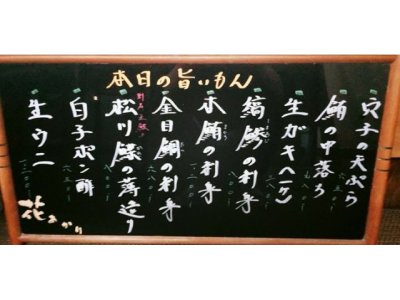 本日の旨いもん
穴子の天ぷら
鮪の中落ち
生ガキ(一ヶ)
縞鯵の刺身
本鮪の刺身
金目鯛の刺身
松川鰈の薄造り
白子ポン酢
生ウニ
花あかり